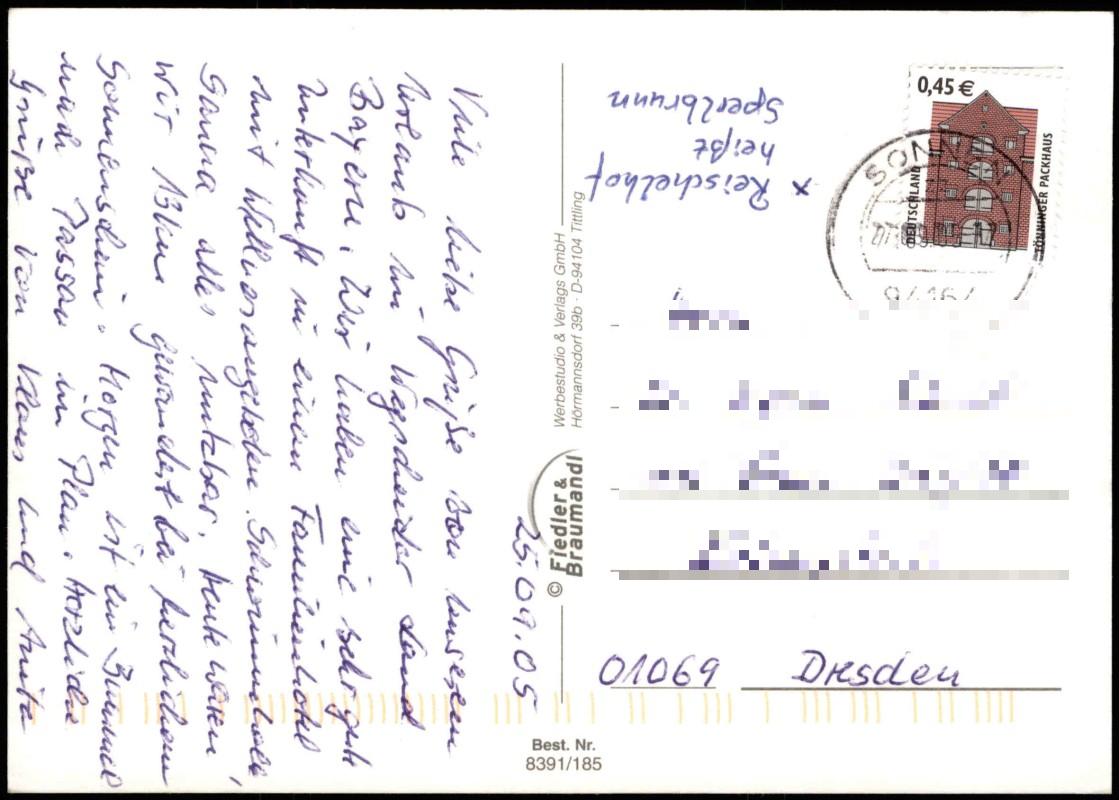 25.09.05
Viele liebe Grüße von unserem
Urlaub im Wegscheider Land
Bayern. Wir haben eine sehr gute
Unterkunft in einem Familienhotel
mit Wellnessangeboten. Schwimmhalle,
Sauna alles nutzbar. Heute waren
wir 13 km gewandert bei herrlichem
Sonnenschein. Morgen ist ein Bummel
nach Passau im Plan. Herzliche
Grüße von Klaus und Anita
x Reischelhof
heißt
Sperlbrunn
0,45 €
DEUTSCHLAND
TÖNNINGER PACKHAUS
SONN
94164
Werbestudio & Verlags GmbH
Hörmannsdorf 39b · D-94104 Tittling
© Fiedler &
Braumandl
01069 Dresden
Best. Nr.
8391/185